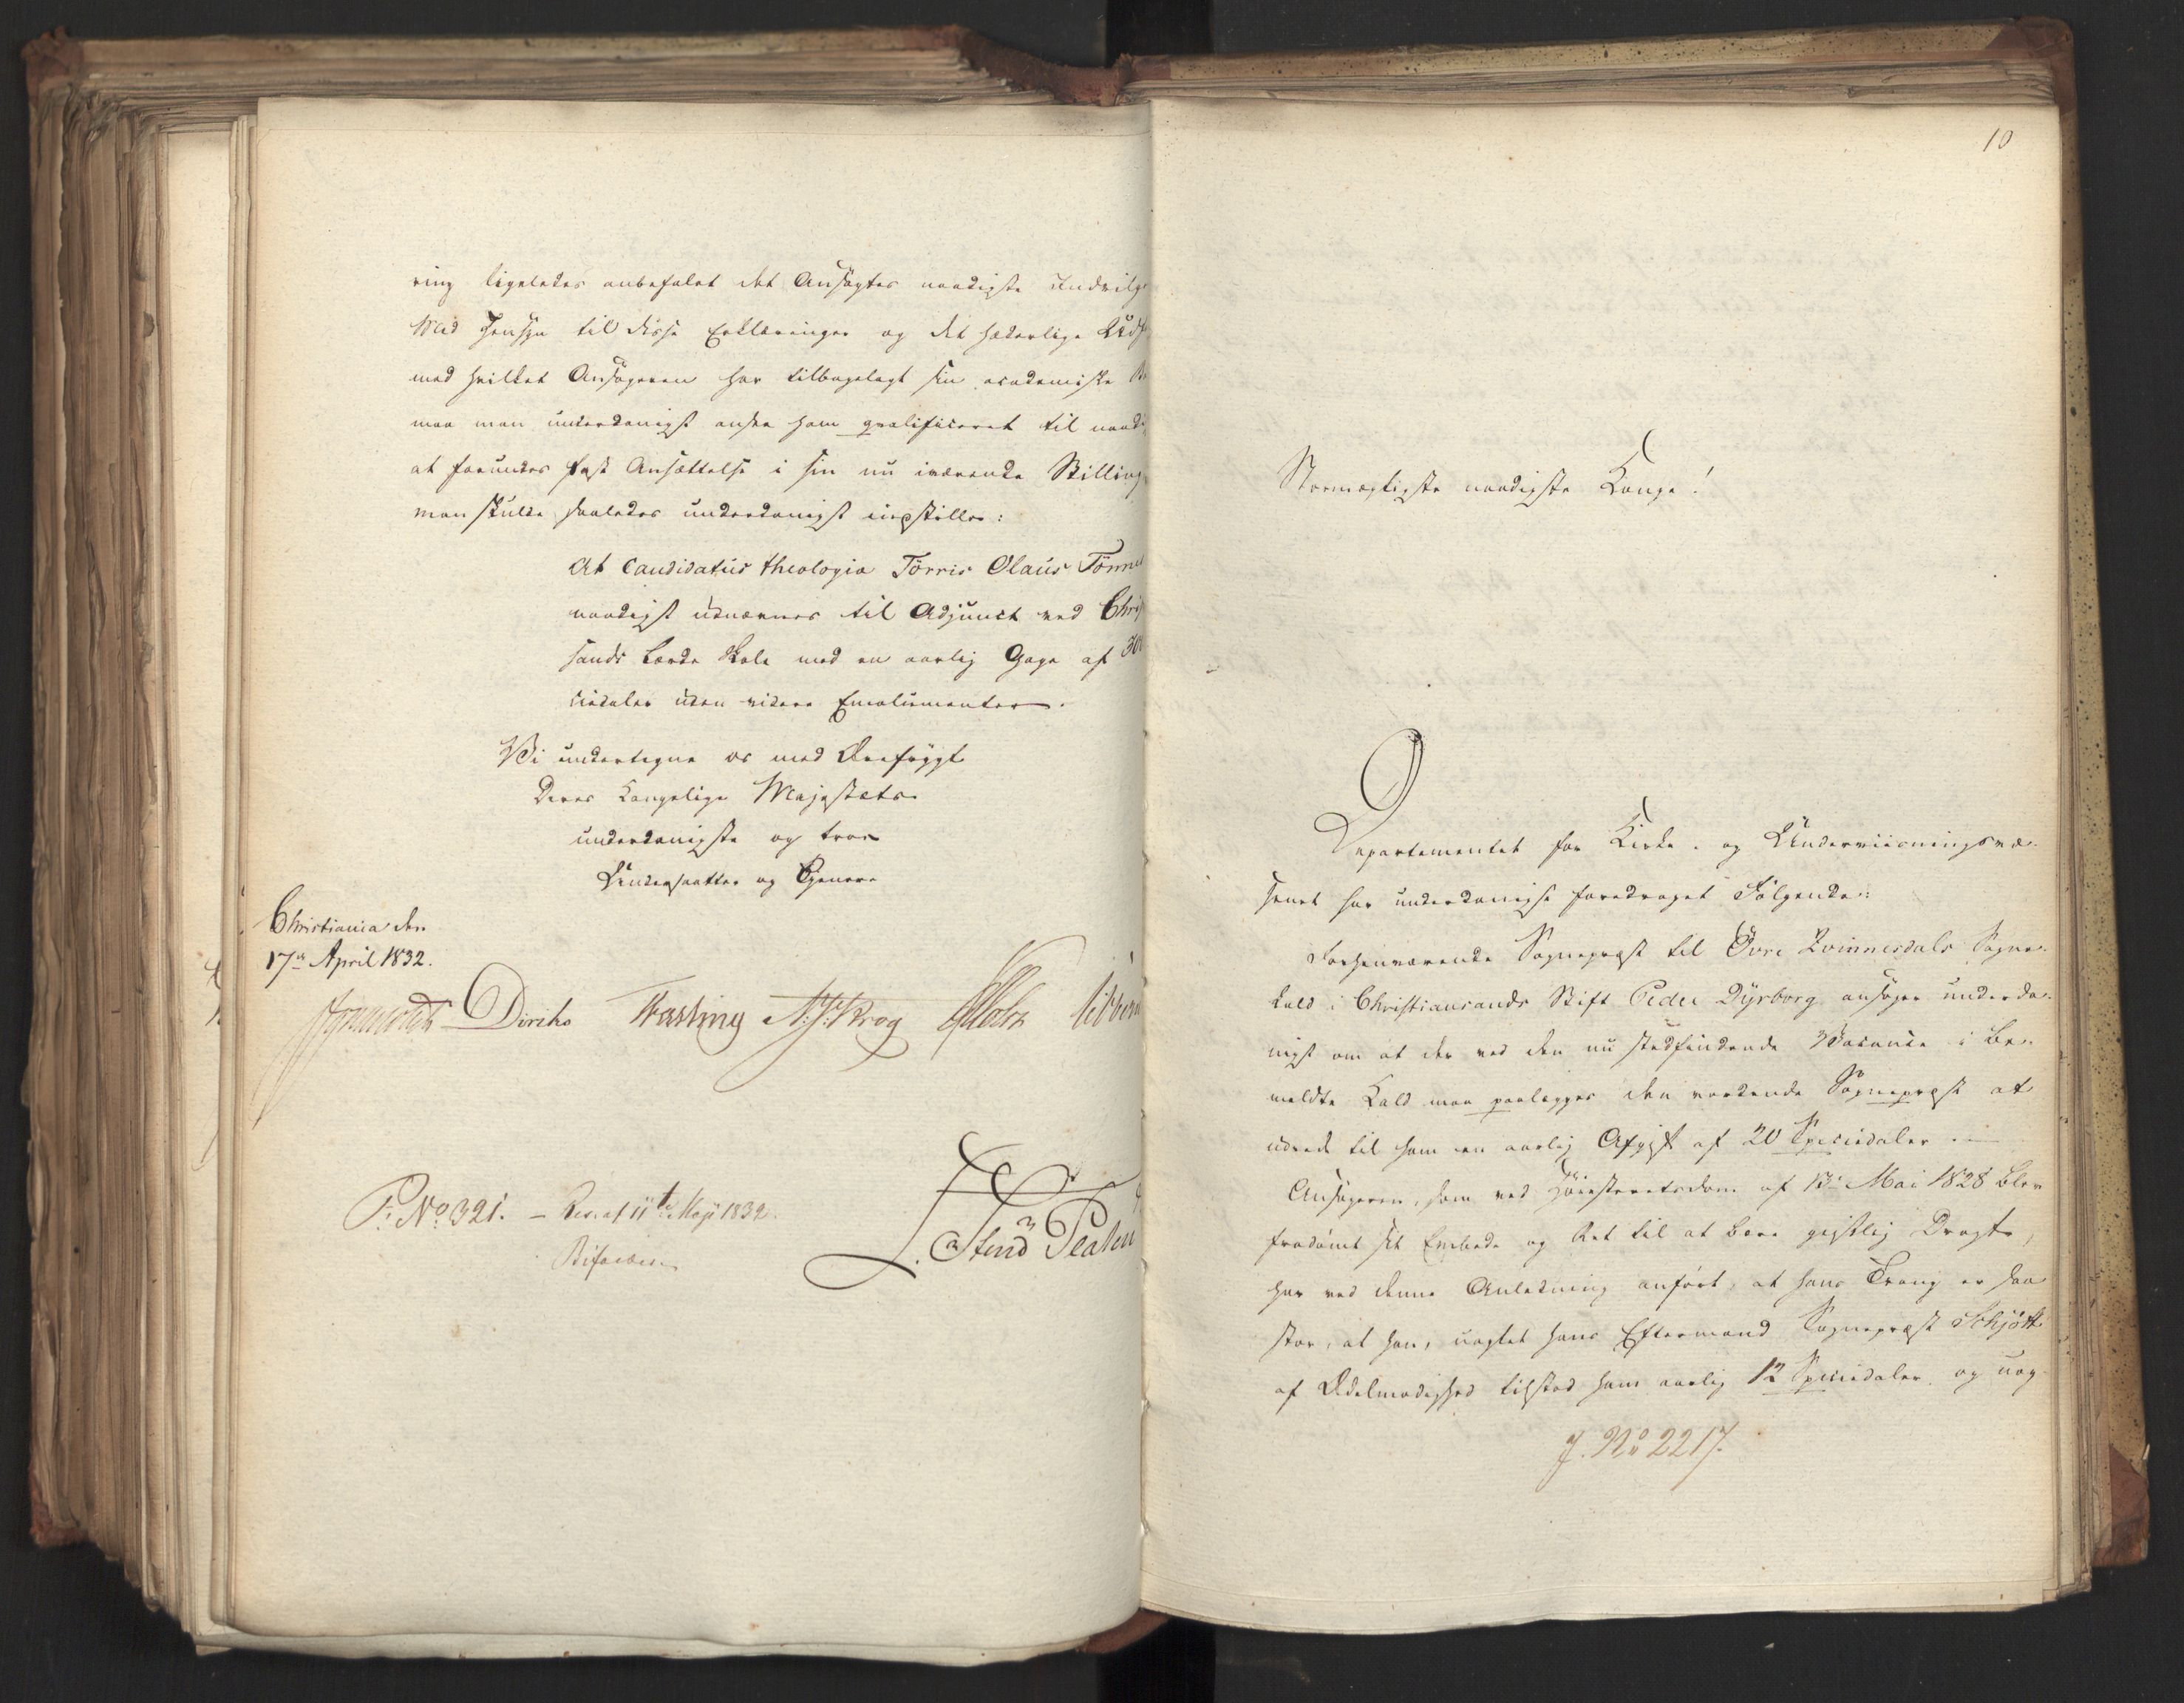 ring ligeledes anbefalet det Ansøgtes naadigste Indvilge
Med Hensyn til disse Erklæringer og det hæderlige Udf
med hvilket Ansøgeren har tilbagelagt sin academiske
maa man underdanigst ansee ham qvalificeret til naad
at forundes fast Ansættelse i sin nu iværende Stilling
man skulde saaledes underdanigst indstille:
At Candidatus theologiæ Törris Olaus Tönne
naadigst udnævnes til Adjunct ved Chris
sands lærde Skole med en aarlig Gage af 300
ciedaler uden videre Emolumenter.
Vi undertegne os med Ærefrygt
Deres Kongelige Majestæts
underdanigste og troe
Undersaatter og Tjenere
Christiania den
17de April 1832.
Diriks Fasting Krog Holst Vibe
P: No 321. – Res. af 11te Maji 1832.
Bifaldes.
Platen
10
Stormægtigste naadigste Konge!
Departementet for Kirke- og Underviisningsvæ-
senet har underdanigst foredraget Følgende:
Forhenværende Sognepræst til Övre Qvinnesdals Sogne-
kald i Christiansands Stift Peder Dyrborg ansøger underda-
nigst om at der ved den nu stedfindende Vacance i be-
meldte Kald maa paalægges den vordende Sognepræst at
udrede til ham en aarlig Afgift af 20 Speciedaler.
Ansøgeren, som ved Höiesteretsdom af 13de Mai 1828 blev
fradømt sit Embede og Ret til at bære geistlig Dragt,
har ved denne Anledning anført, at hans Trang er saa
stor, at han, uagtet hans Eftermand Sognepræst Schjött
af Ædelmodighed tilstod ham aarlig 12 Speciedaler, og uag-
J. No 2217.